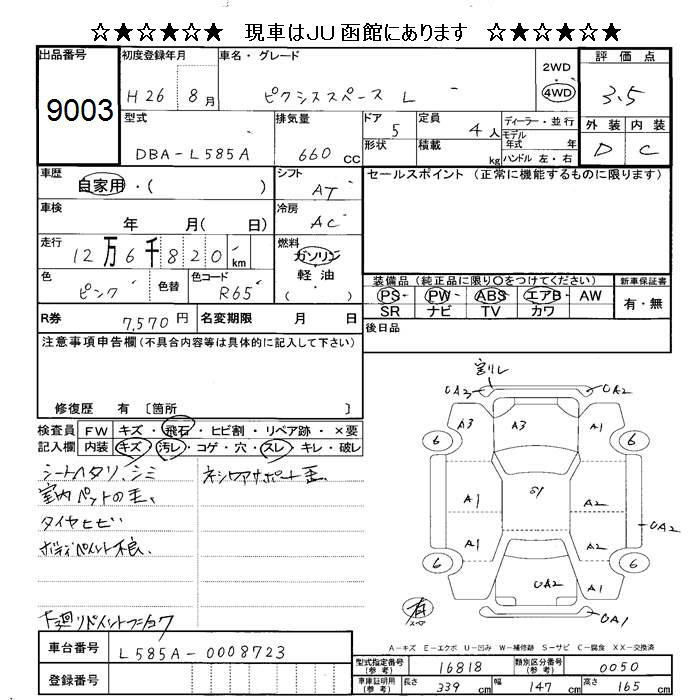 ☆★☆★☆★ 現車はJU函館にあります ☆★☆★☆★
出品番号 初度登録年月 車名・グレード 2WD 評価点
9003 H26 8月 ピクシススペース L 4WD 3.5
型式 排気量 ドア 定員 ディーラー・並行 外装 内装
DBA-L585A 660cc 5 4人 モデル年式 年 D C
形状 積載 kg ハンドル 左・右
車歴 シフト セールスポイント (正常に機能するものに限ります)
自家用・( ) AT
車検 冷房
年 月( 日) AC
走行 燃料
12万6千820km ガソリン
色 色替 色コード 軽油
ピンク R65 ( )
装備品 (純正品に限り○をつけてください) 新車保証書
PS PW ABS エアB AW 有・無
SR ナビ TV カワ
R券 7,570円 名変期限 月 日 後日品
注意事項申告欄(不具合内容等は具体的に記入して下さい)
修復歴 有 〔箇所 〕
検査員 FW キズ・飛石・ヒビ割・リペア跡・×要
記入欄 内装 キズ・汚レ・コゲ・穴・スレ・キレ・破レ
シートヘタリ、シミ
室内ペットの毛、
タイヤヒビ
ボディペイント不良、
下廻リペイントフーカワ
割レ
UA3 UA2
A3 A3 A1
6 6
A1 S1 A2
UA2
A1 A2
6 6
UA2 A1
有 スペア
UA1
A-キズ E-エクボ U-凹み W-補修跡 S-サビ C-腐食 XX-交換済
車台番号 L585A-0008723
登録番号
型式指定番号(参考) 16818 類別区分番号(参考) 0050
車庫証明用(参考) 長さ 339cm 幅 147cm 高さ 165cm